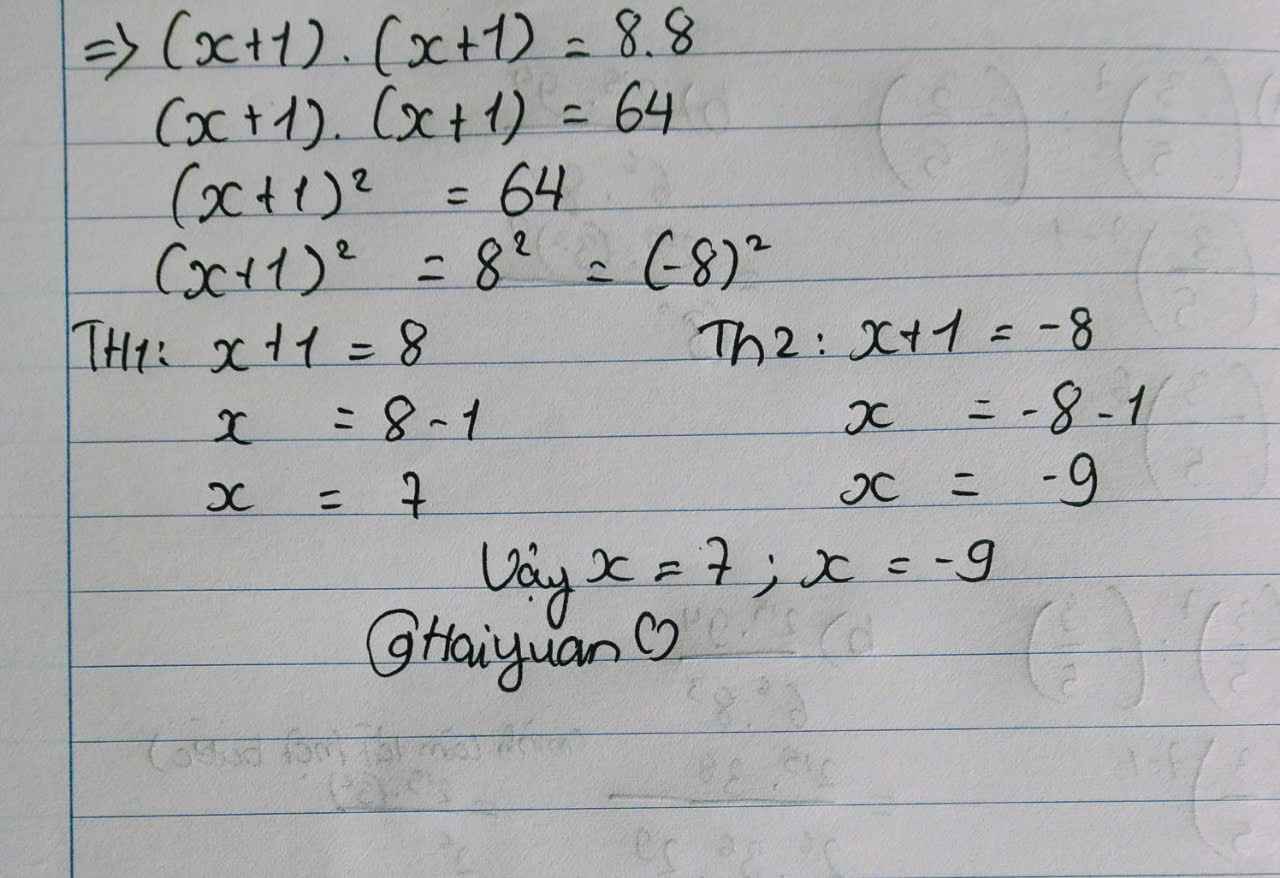 => (x+1).(x+1) = 8.8
(x+1).(x+1) = 64
(x+1)² = 64
(x+1)² = 8² = (-8)²
TH1: x+1 = 8 Th2: x+1 = -8
x = 8-1 x = -8-1
x = 7 x = -9
Vậy x = 7 ; x = -9
@Haiyuan ♡